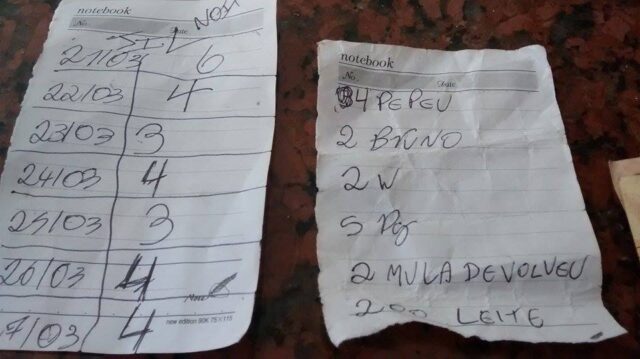 notebook
No. Date
21/03 6
22/03 4
23/03 3
24/03 4
25/03 3
26/03 4
7/03 4
Note
new edition 90K 75×115
notebook
No. Date
4 PEPEU
2 BRUNO
2 W
5
2 MULA DEVOLVEU
200 LEITE